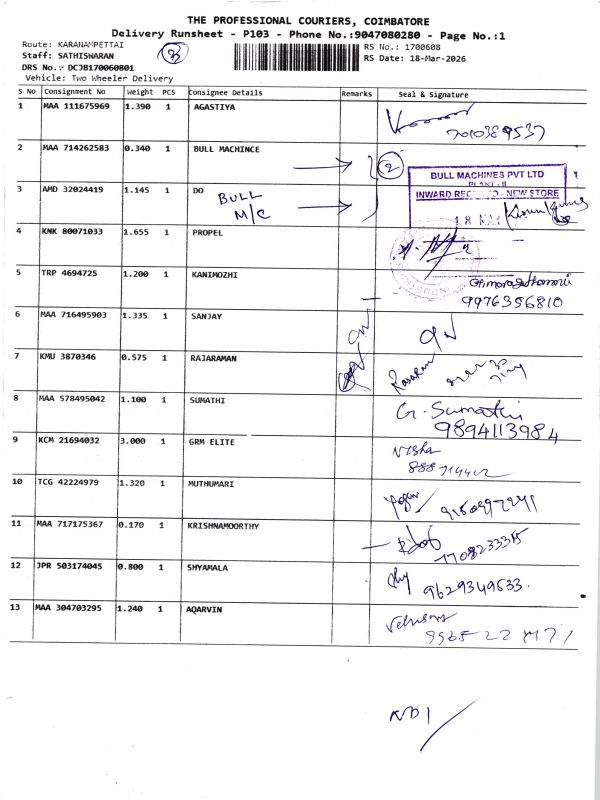 THE PROFESSIONAL COURIERS, COIMBATORE
Delivery Runsheet - P103 - Phone No.:9047080280 - Page No.:1
Route: KARANAMPETTAI
RS No.: 1700608
Staff: SATHISWARAN
RS Date: 18-Mar-2026
DRS No.:- DCJB170060801
Vehicle: Two Wheeler Delivery
S No Consignment No Weight PCS Consignee Details Remarks Seal & Signature
1 MAA 111675969 1.390 1 AGASTIYA
7010389537
2 MAA 714262583 0.340 1 BULL MACHINCE
2
BULL MACHINES PVT LTD
PLANT - II
INWARD NEW STORE
3 AMD 32024419 1.145 1 DO
BULL
M/C
4 KNK 80071033 1.655 1 PROPEL
5 TRP 4694725 1.200 1 KANIMOZHI
9976356810
6 MAA 716495903 1.335 1 SANJAY
7 KMU 3870346 0.575 1 RAJARAMAN
8 MAA 578495042 1.100 1 SUMATHI
G. Sumathi
9894113984
9 KCM 21694032 3.000 1 GRM ELITE
Nisha
10 TCG 42224979 1.320 1 MUTHUMARI
11 MAA 717175367 0.170 1 KRISHNAMOORTHY
12 JPR 503174045 0.800 1 SHYAMALA
9629349533.
13 MAA 304703295 1.240 1 AQARVIN